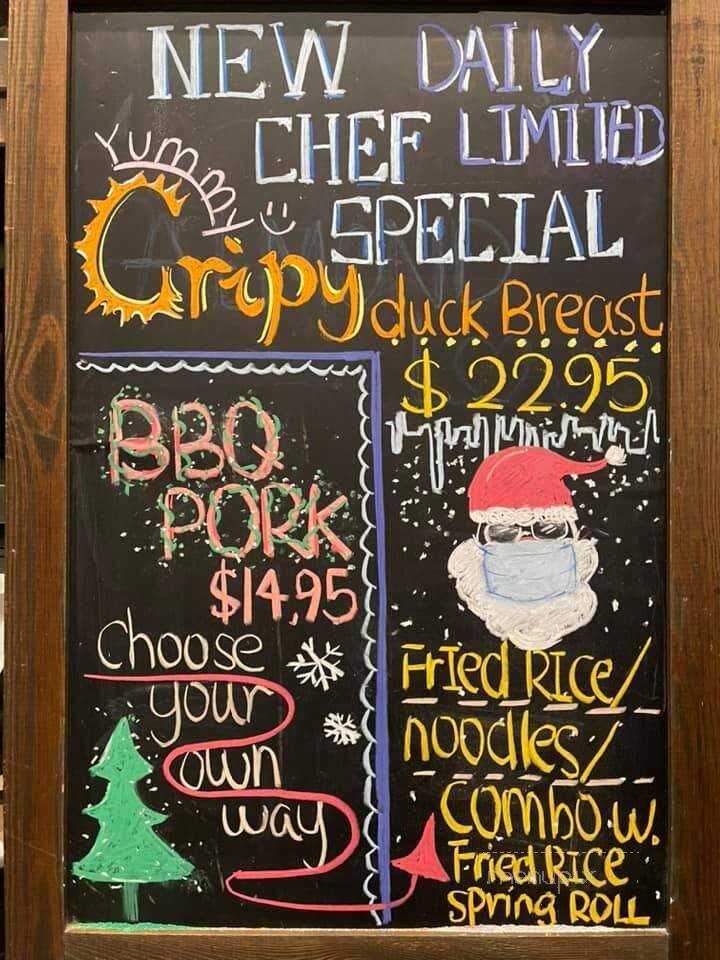 NEW DAILY
CHEF LIMITED
SPECIAL
Yummy
Cripy duck Breast
$22.95
BBQ
PORK
$14.95
choose
your
own
way
Fried RICe/
noodles/
Combo w.
Fried RICE
spring ROLL